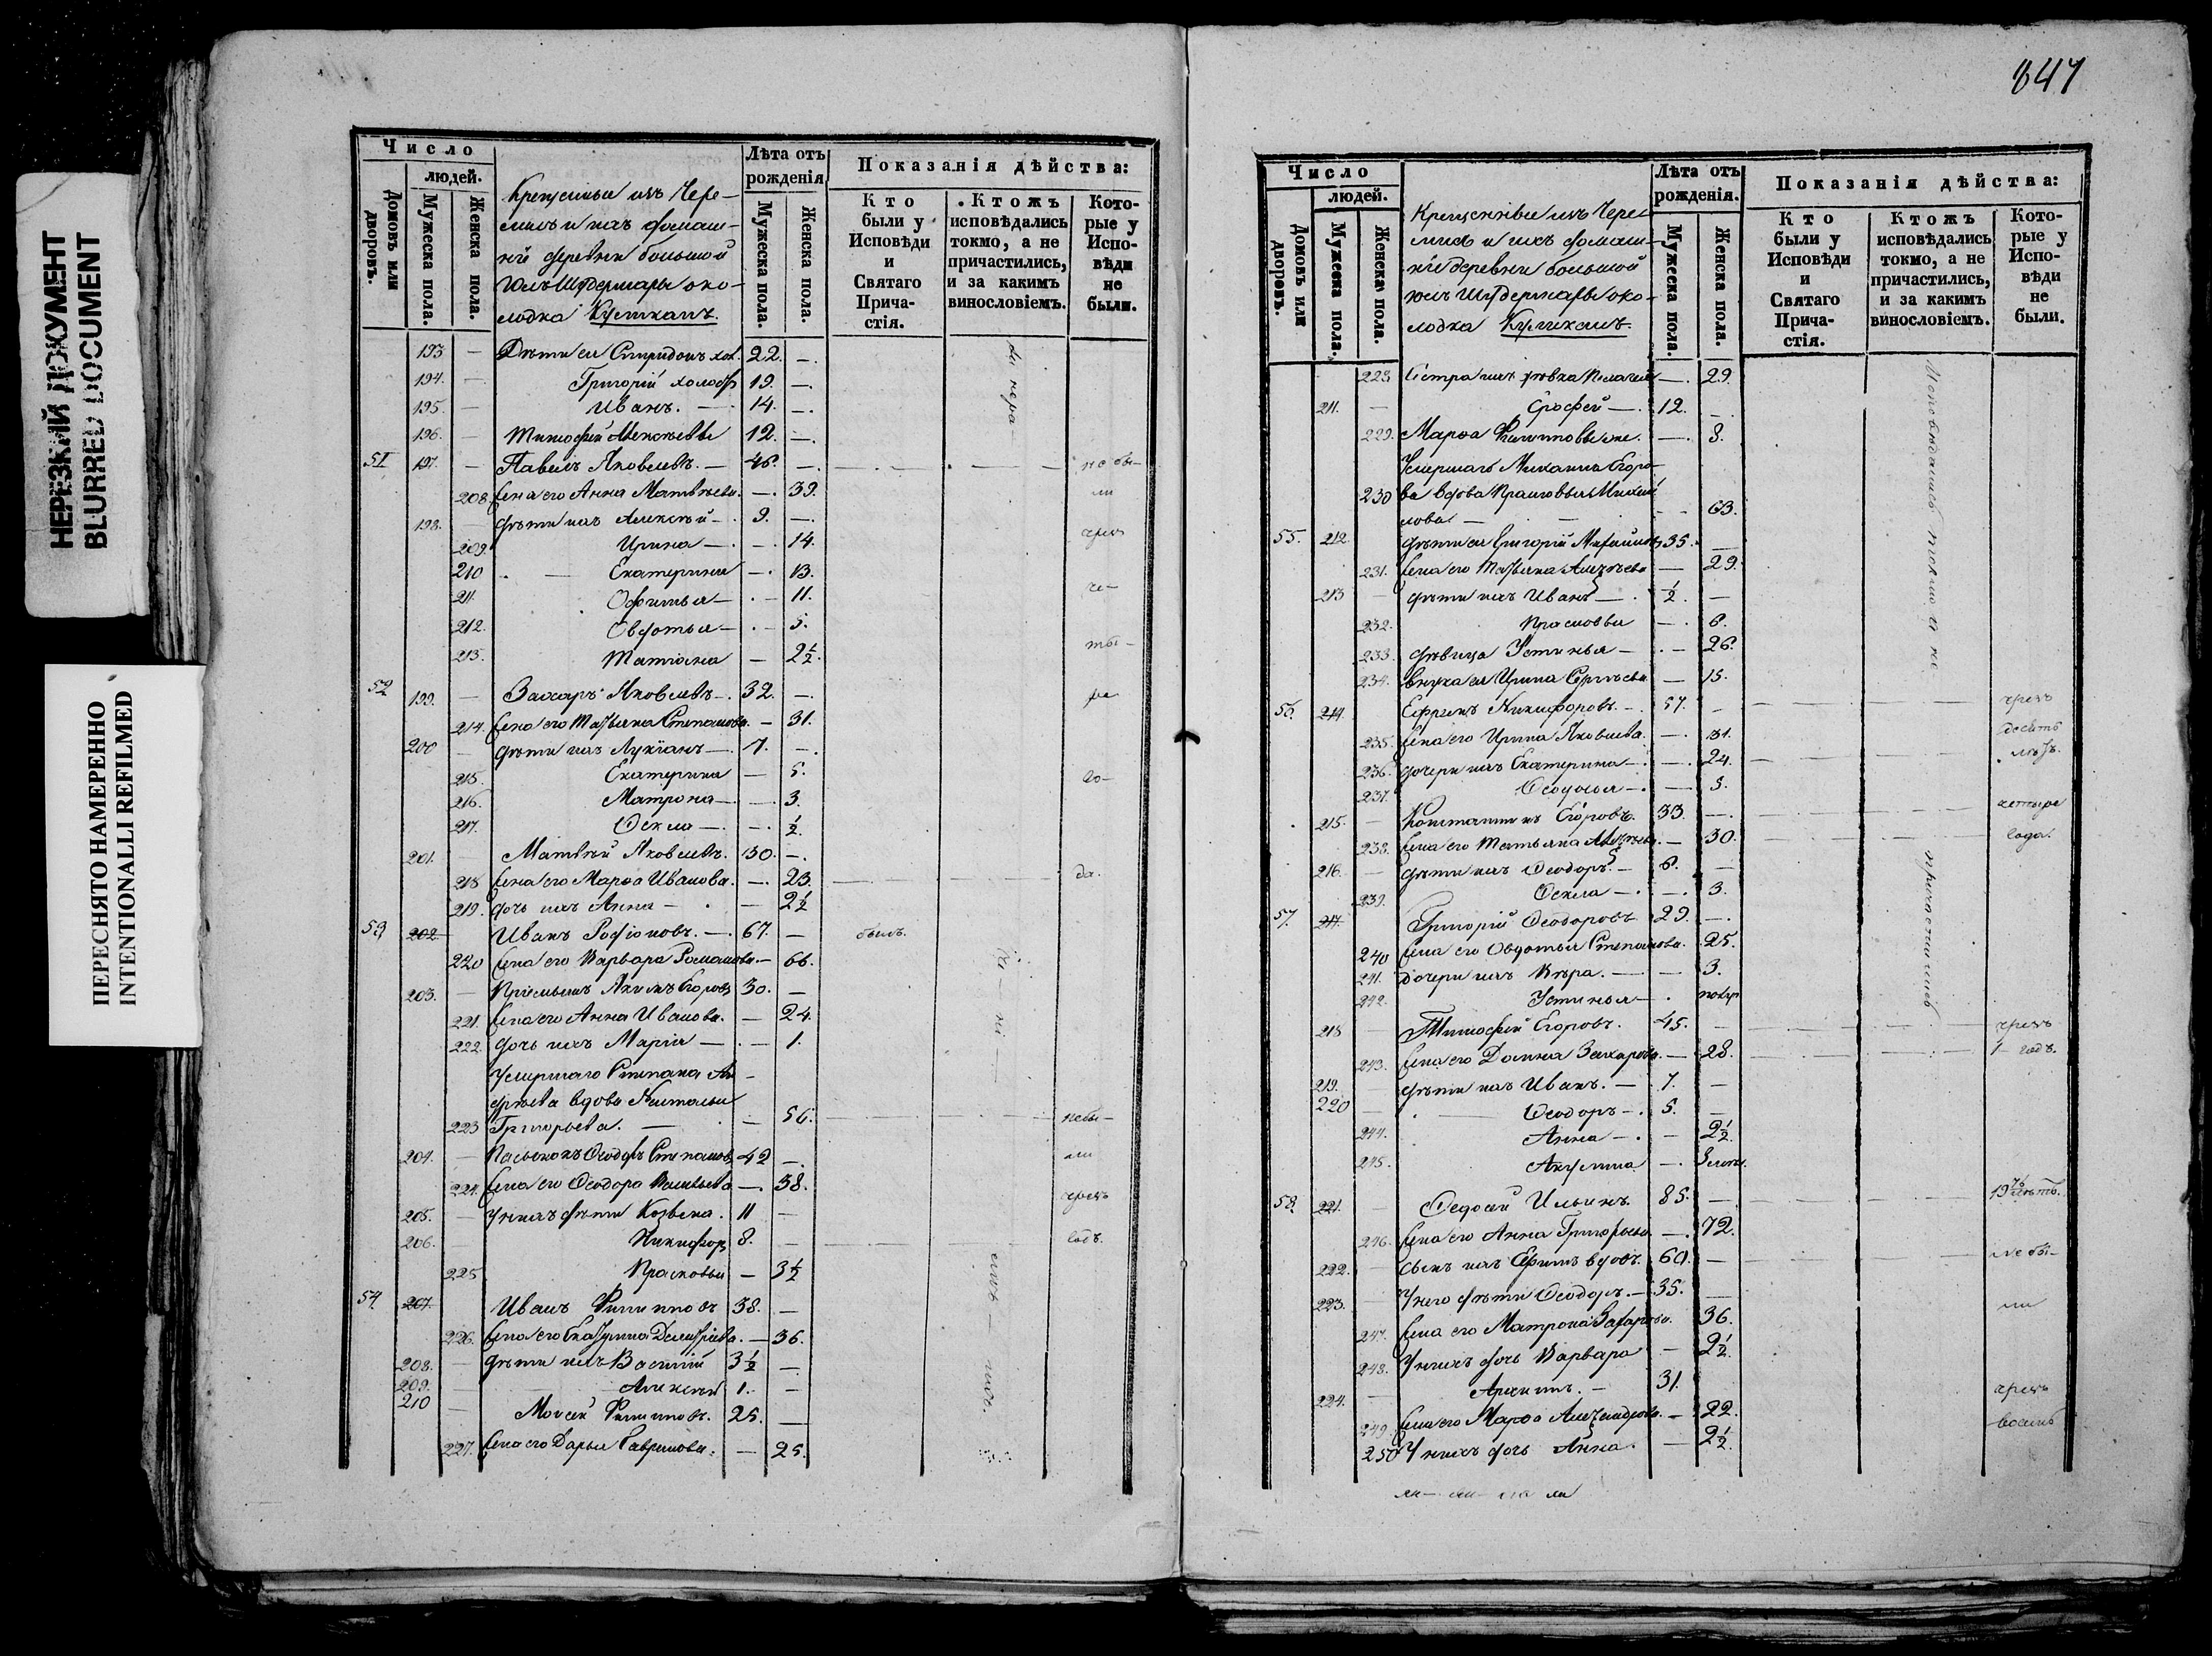 НЕРЕЗКИЙ ДОКУМЕНТ
BLURRED DOCUMENT
ПЕРЕСНЯТО НАМЕРЕННО
INTENTIONALLI REFILMED
Число
людей.
Домовъ или дворовъ.
Мужеска пола.
Женска пола.
Крещеные изъ Чере-
мисъ и ихъ домаш-
ніе деревни большой
околодка Кушканъ.
Лѣта отъ рожденія
Мужеска пола.
Женска пола.
Показанія дѣйства:
Кто были у Исповѣди и Святаго Прича-стія.
Ктожъ исповѣдались токмо, а не причастились, и за какимъ винословіемъ.
Кото-рые у Испо-вѣди не были.
193 — Дѣти ея Спиридонъ хол. 22. —.
194. — Григорій холост 19. —.
195. — Иванъ. — 14. —.
196. — Тимофей Алексѣевъ 12. —.
51 197. — Павелъ Яковлевъ. — 46. —. не бы-
208. Жена его Анна Матвѣева. —. 39. ли
198. — дѣти ихъ Алексѣй —. 9. —.
209. Ирина —. —. 14. чрезъ
210 Екатерина —. 13.
211. Офимья —. — 11. че-
212. Овдотья —. — 5.
213. Татіана — 2½. ты-
52 199. — Захаръ Яковлевъ —. 32. —. ре
214. Жена его Татьяна Степанова. — 31.
200 — дѣти ихъ Лукіанъ —. 7. —.
215. Екатерина — 5. го-
216. Матрона —. —. 3.
217. Ѳекла —. —. ½.
201. — Матвѣй Яковлевъ. 30. —.
218 Жена его Марѳа Иванова. —. 23. да.
219. дочь ихъ Анна — — 2½
53 202 Иванъ Родіоновъ. —. 67. — былъ.
220 Жена его Варвара Романова. — 66.
203. — Пріемышъ Акимъ Егоровъ 30. —
221. Жена его Анна Иванова. — 24.
222. дочь ихъ Марія —. — 1.
Умершаго Степана Ан-
дреева вдова Наталья
223 Григорьева. — — 56. небы-
204. — Пасынокъ Ѳеодоръ Степановъ 42 —. ли
224. Жена его Ѳеодора Васильева —. 38. чрезъ
205. — У нихъ дѣти Козьма. 11 —
206. — Никифоръ 8. — годъ.
225 Прасковья — 3½
54. 207. Иванъ Филипповъ 38. —
226. Жена его Екатерина Дмитріева. — 36.
208. — дѣти ихъ Василій 3½ —
209. — Алексѣй 1. —
210 — Моисей Филипповъ. 25. —
227. Жена его Дарья Гаврилова. — 25.
847
Число
людей.
Домовъ или дворовъ.
Мужеска пола.
Женска пола.
Крещенные изъ Чере-
мисъ и ихъ домаш-
ніе деревни большой
околодка Кушканъ.
Лѣта отъ рожденія.
Мужеска пола.
Женска пола.
Показанія дѣйства:
Кто были у Исповѣди и Святаго Прича-стія.
Ктожъ исповѣдались токмо, а не причастились, и за какимъ винословіемъ.
Кото-рые у Испо-вѣди не были.
Исповѣдались токмо а не причастились
228. Сестра ихъ дѣвка Пелагея —. 29.
211. — Ерофей —. 12. —
229. Марѳа Филиппова. —. 8.
Умершаго Михаила Егоро-
230 ва вдова Прасковья Михай-
лова — 63.
55. 212. дѣти ея Григорій Михайловъ 35. —
231. Жена его Татьяна Алексѣева — 29.
213 — дѣти ихъ Иванъ —. ½. —
232. Прасковья —. 6.
233. дѣвица Устинья — — 26.
234. внука ея Ирина Сергѣева — 15.
56. 214. Ефремъ Никифоровъ. —. 57. — чрезъ
235. Жена его Ирина Яковлева. —. 51. десять
236. дочери ихъ Екатерина —. —. 24. лѣтъ.
237. Ѳеодосья —. — 5.
215. — Константинъ Егоровъ. 33. —. четыре
238. Жена его Татьяна —. 30. года.
216. — дѣти ихъ Ѳеодоръ. — 6. —
239. Ѳекла —. —. 3.
57. 217. Григорій Ѳеодоровъ 29. —.
240 Жена его Овдотья Степанова. 25.
241. дочери ихъ Вѣра. — — 3.
242. Устинья —. полуг
218 — Тимофей Егоровъ. 45. — чрезъ
243. Жена его Домна Захарова. — 28. 1 годъ.
219. — дѣти ихъ Иванъ. — 7. —
220 — Ѳеодоръ —. 5. —
244. Анна —. — 2½.
245. Акулина —.
58. 221. — Ѳедосей Ильинъ. 85. — 19 лѣтъ.
246. Жена его Анна Григорьева —. 72.
222. — сынъ ихъ Ефимъ вдовъ. 60. — не бы-
223. — У него дѣти Ѳеодоръ. — 35. — ли
247. Жена его Матрона Захарова. 36.
248. У нихъ дочь Варвара — 2½.
224. — Архипъ. — 31. чрезъ
249. Жена его Марѳа Александрова. — 22. восемь
250 У нихъ дочь Анна. — 2½.